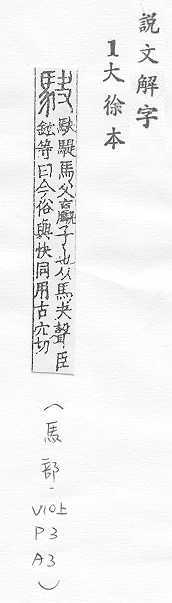 説文解字
1大徐本
駃
駃騠馬父驘子也从馬夬聲臣
鉉等曰今俗與快同用古穴切
(馬部-
V10上
P3
A3)